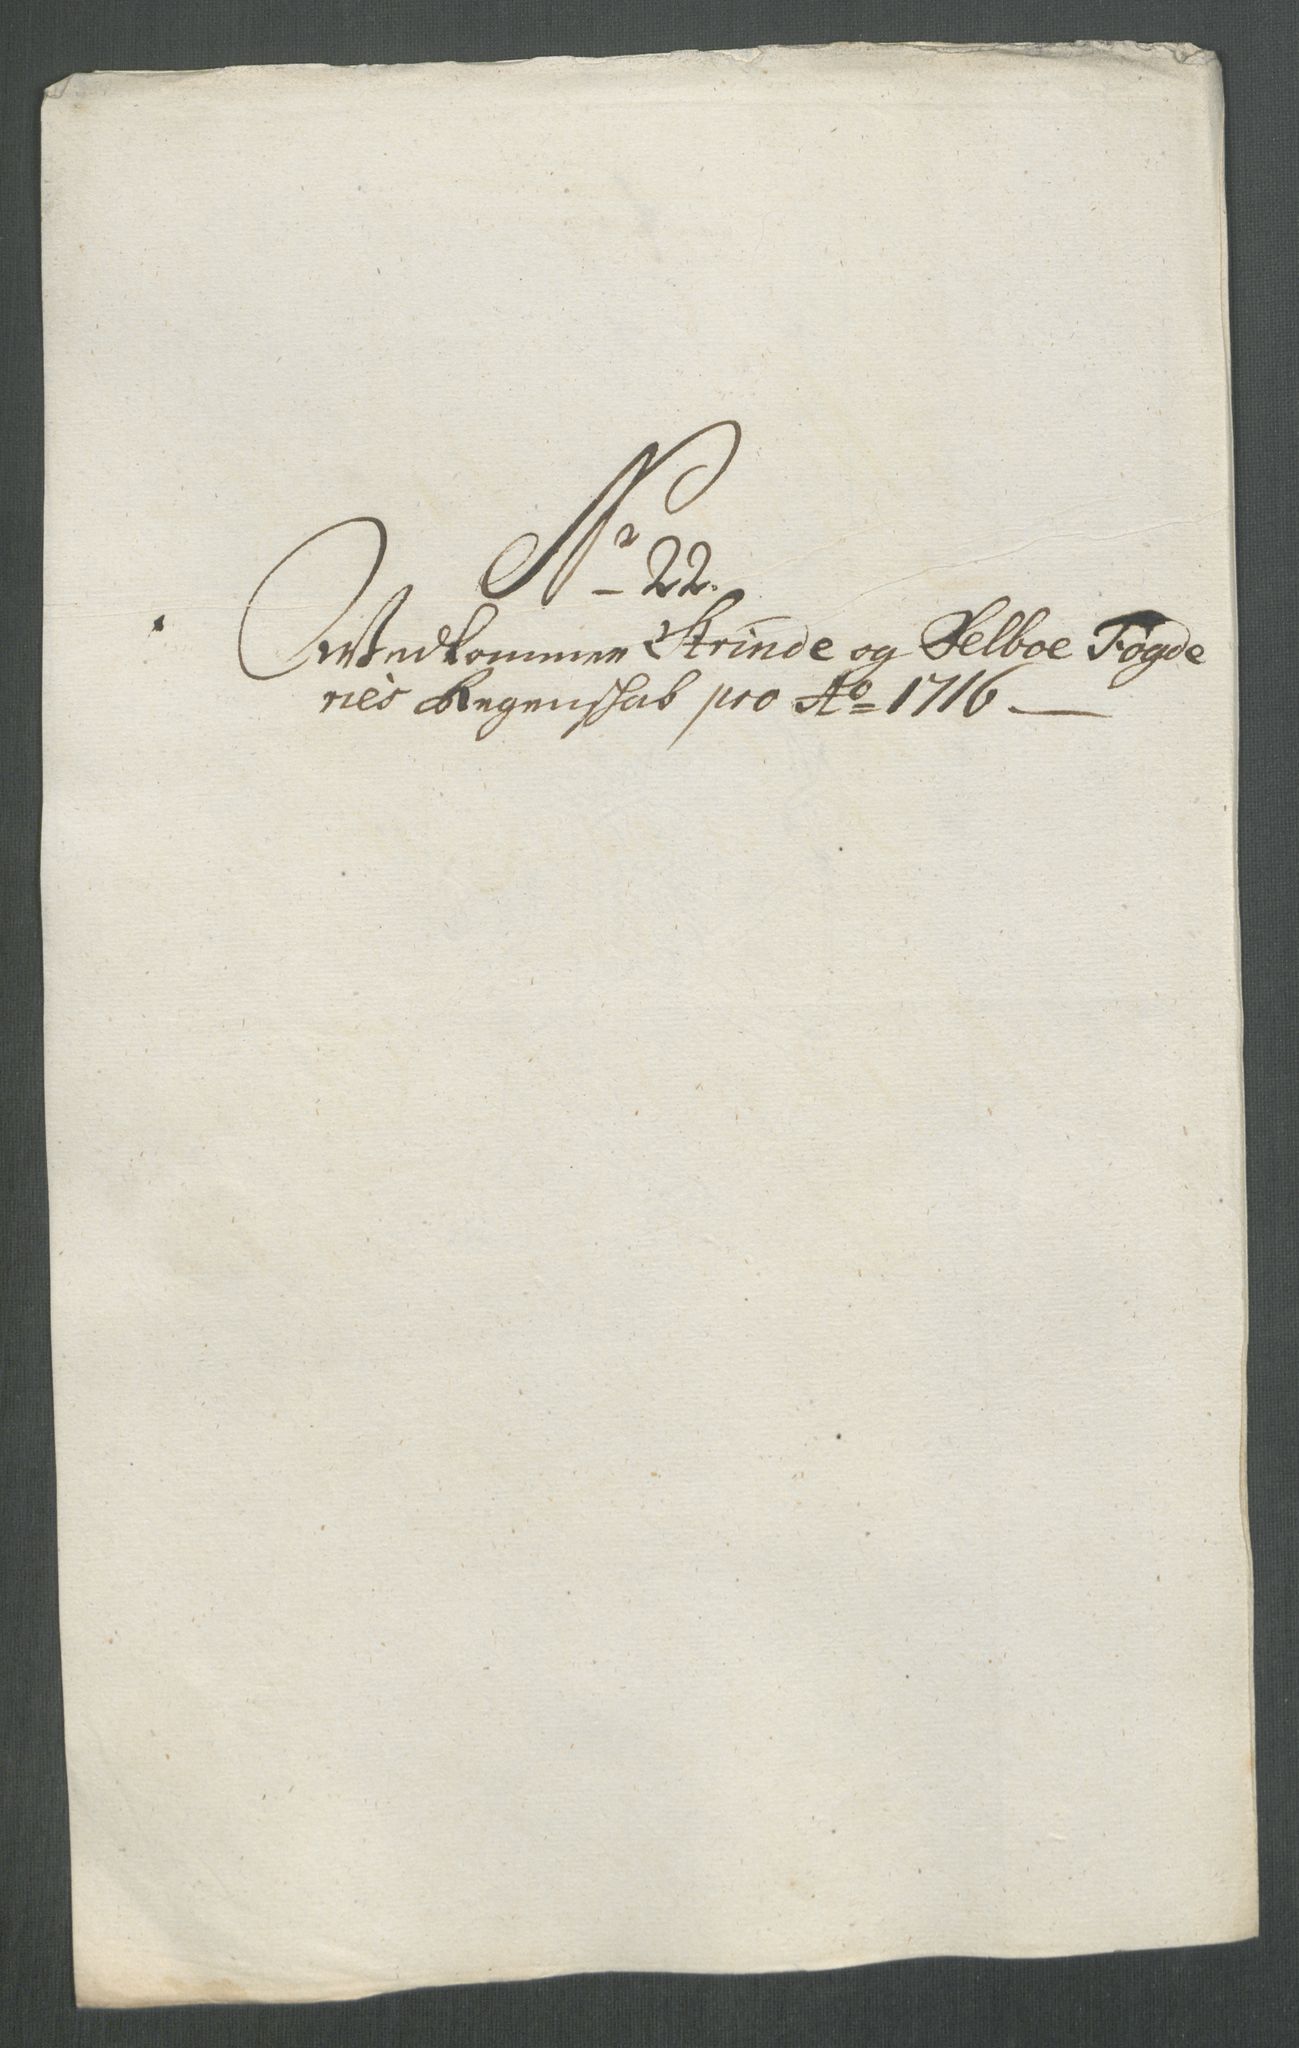 No 22.
Vedkommer Strinde og Selboe Fogde
ries Regenskab pro Ao 1716